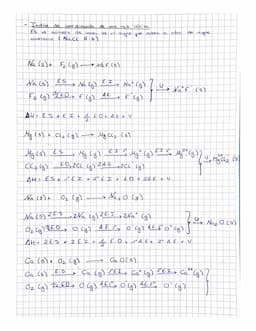 - Índice de coordinación de una red iónica
Es el número de iones de un signo que rodea a otro de signo
contrario (NaCl 6:6)
Na (s) + F₂ (g) → NaF (s)
Na (s) E.S → Na (g) E.I → Na⁺ (g)
F₂ (g) ½ E.D → F (g) A.E → F⁻ (g)
U → Na⁺F⁻ (s)
ΔH = E.S + E.I + ½ E.D + A.E + U
Mg (s) + Cl₂ (g) → MgCl₂ (s)
Mg (s) E.S → Mg (g) E.I → Mg⁺ (g) → Mg²⁺ (g)
Cl₂ (g) E.D → 2Cl (g) 2A.E → 2Cl⁻ (g)
ΔH = E.S + E.I + E.I + E.D + 2A.E + U
Na (s) + O₂ (g) → Na₂O (s)
Na (s) 2E.S → 2Na (g) 2E.I → 2Na⁺ (g)
O₂ (g) ½E.D → O (g) A.E → O⁻ (g) A.E → O²⁻ (g)
U → Na₂O (s)
ΔH = 2E.S + 2E.I + ½ E.D + A.E + A.E + U
Ca (s) + O₂ (g) → CaO (s)
Ca (s) E.S → Ca (g) E.I → Ca⁺ (g) E.I → Ca²⁺ (g)
O₂ (g) ½E.D → O (g) A.E → O⁻ (g) A.E → O²⁻ (g)